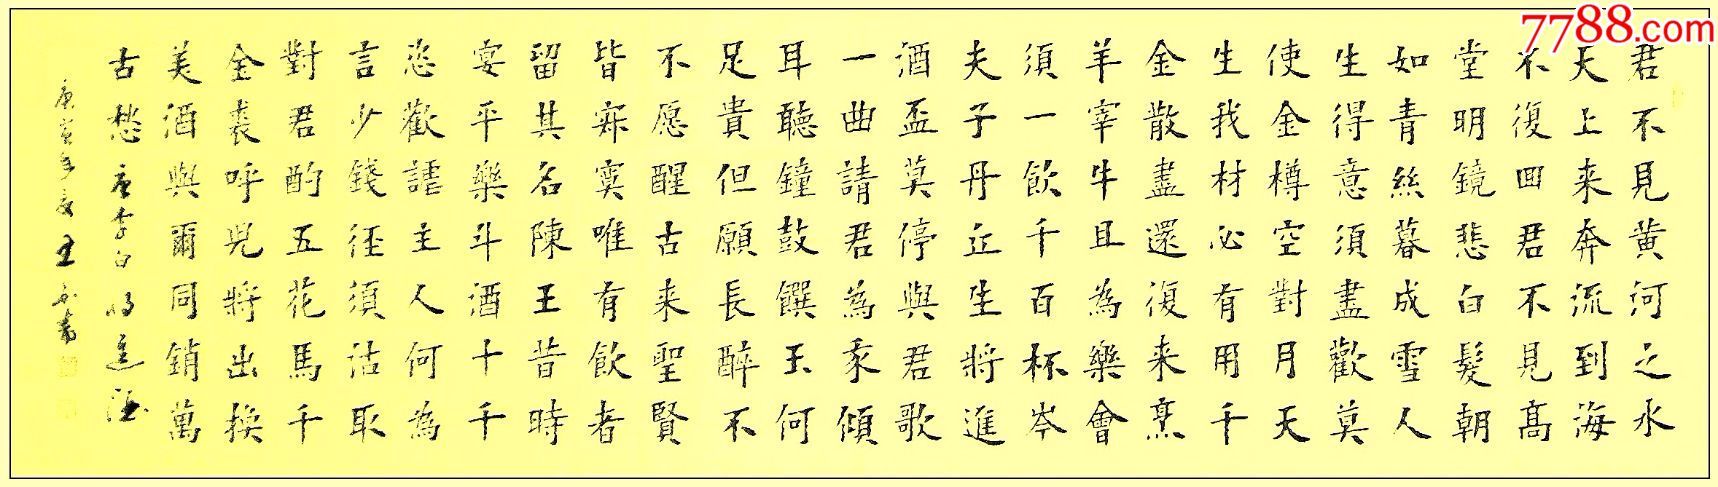 7788.com
君不見黄河之水
天上来奔流到海
不復回君不見高
堂明鏡悲白髮朝
如青絲暮成雪人
生得意須盡歡莫
使金樽空對月天
生我材必有用千
金散盡還復来烹
羊宰牛且為樂會
須一飲千百杯岑
夫子丹丘生將進
酒盃莫停與君歌
一曲請君為我傾
耳聽鐘鼓饌玉何
足貴但願長醉不
不愿醒古来聖賢
皆寂寞唯有飲者
留其名陳王昔時
宴平樂斗酒十千
恣歡謔主人何為
言少錢径須沽取
對君酌五花馬千
金裘呼兒將出換
美酒與爾同銷萬
古愁唐李白将進酒
庚寅年夏王書